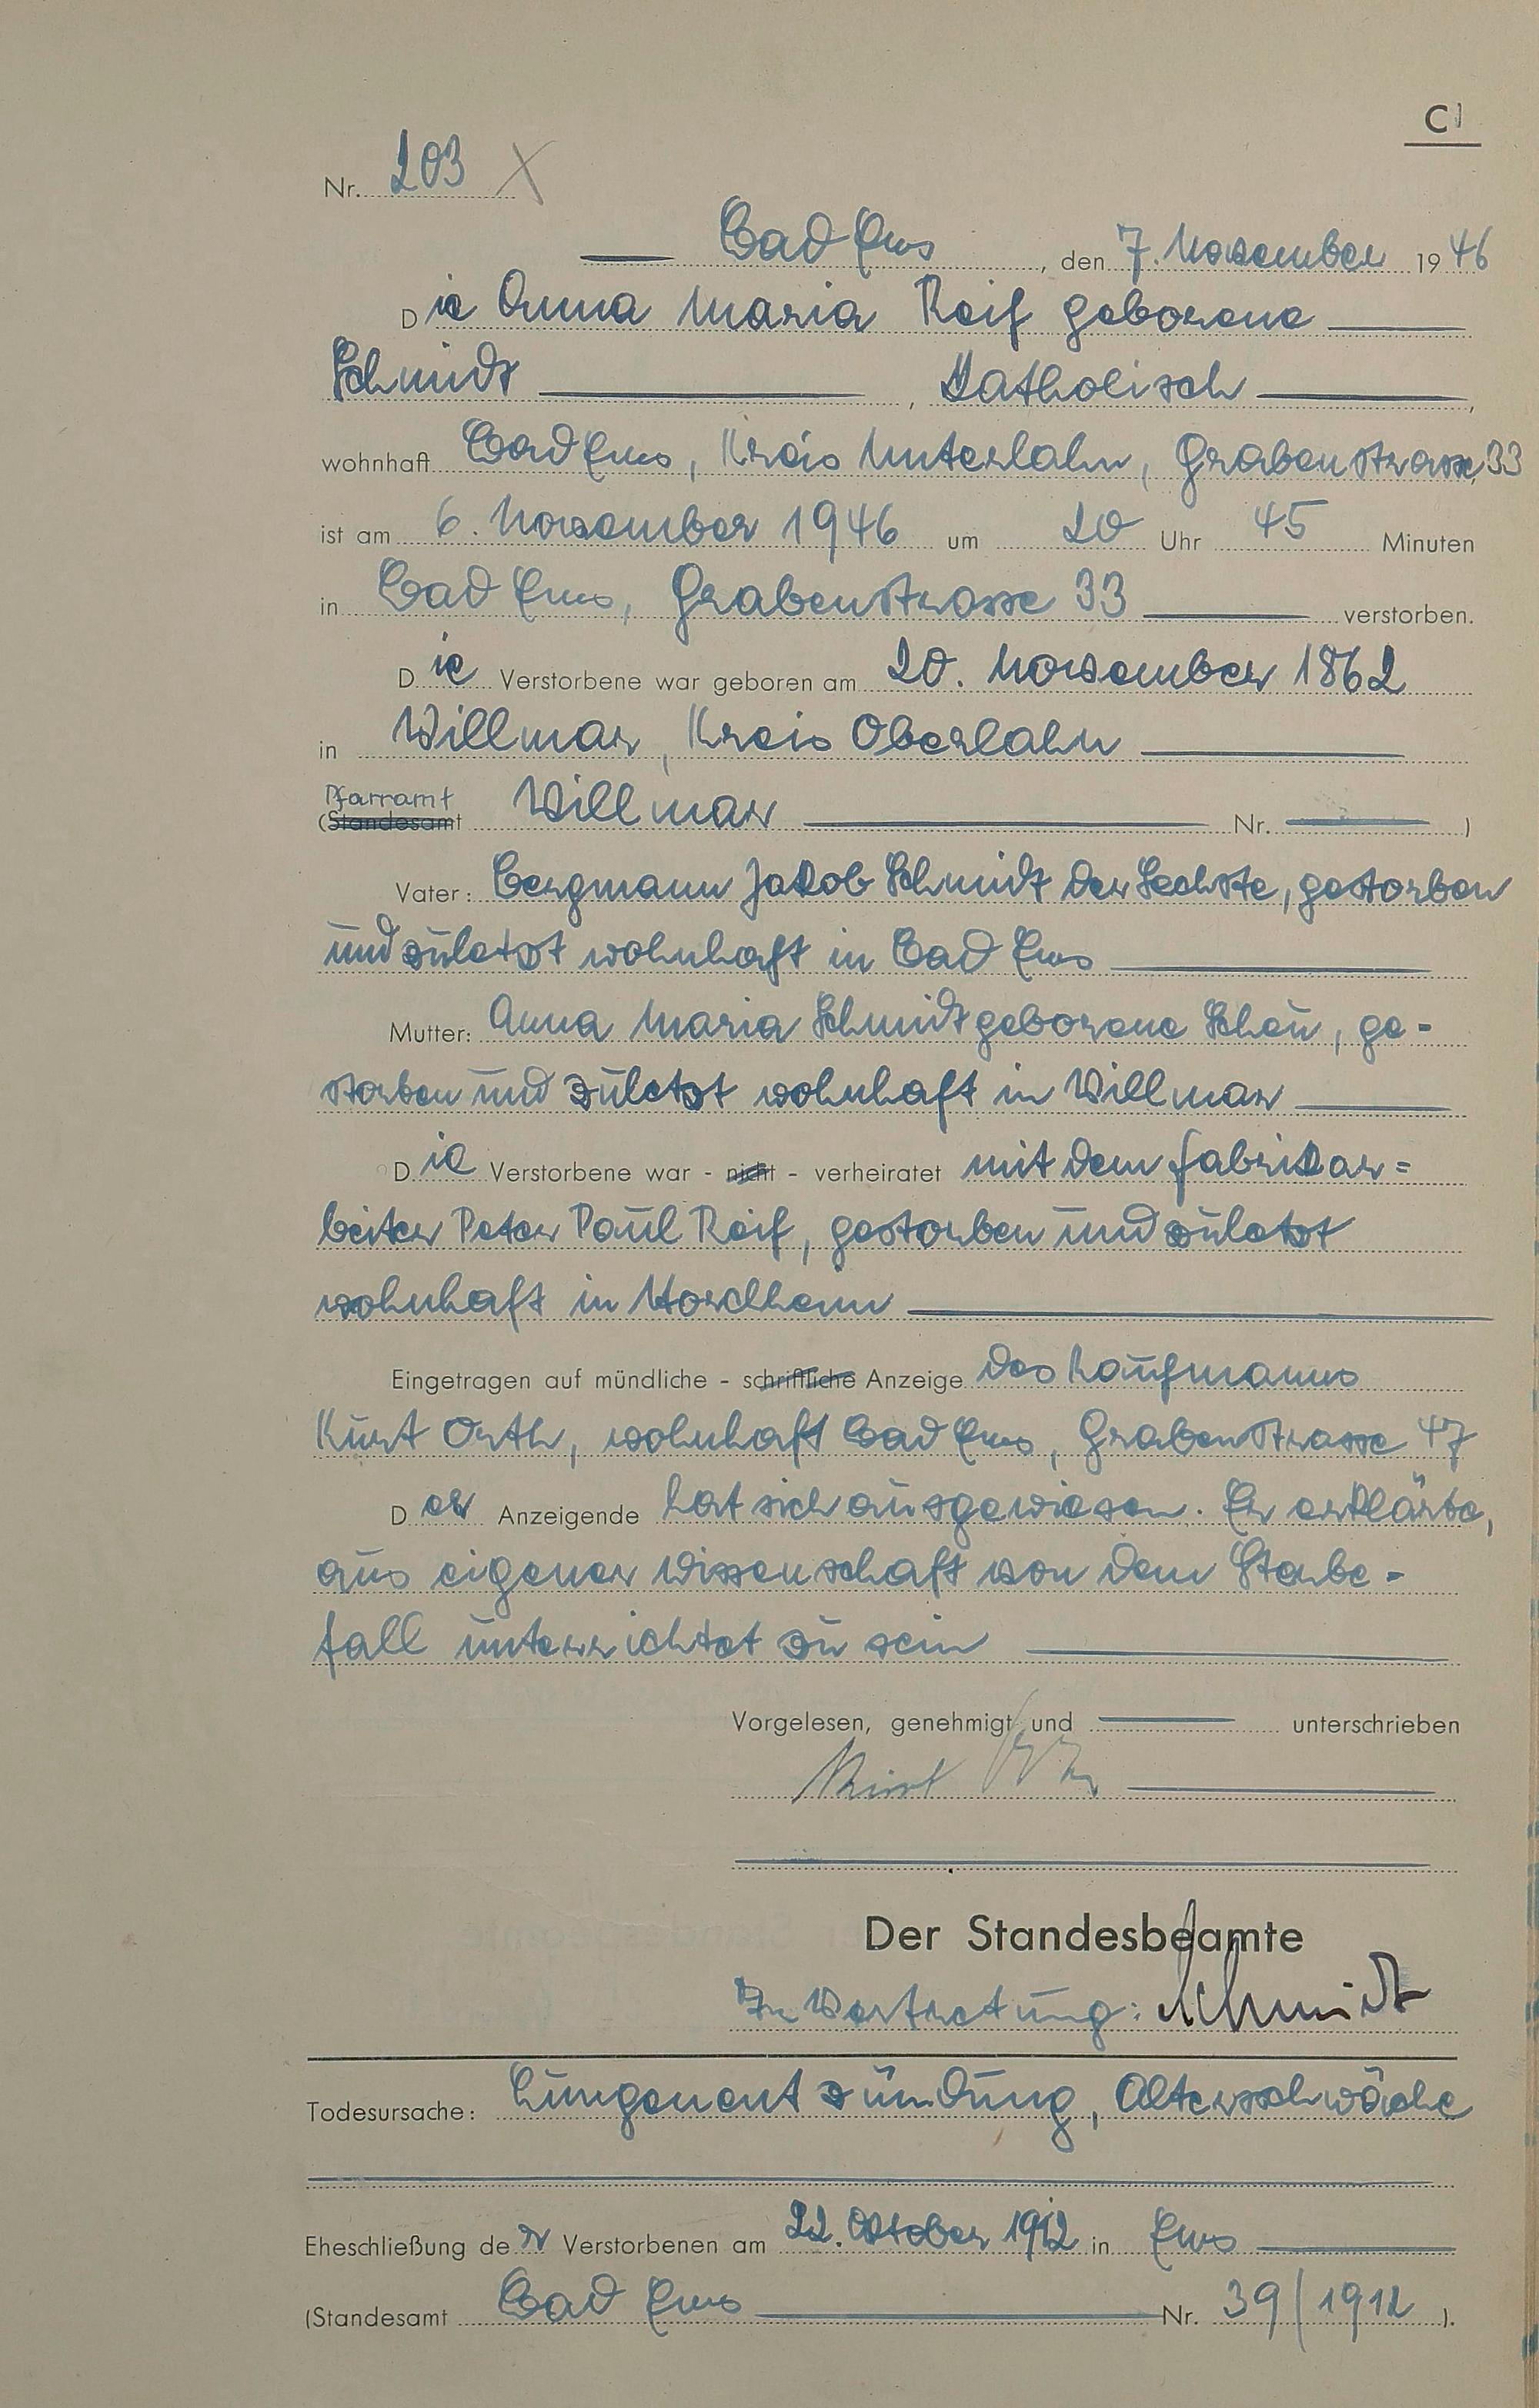 C1
Nr. 203 X
Bad Ems, den 7. November 1946
Die Anna Maria Reif geborene
Schmidt, katholisch,
wohnhaft Bad Ems, Kreis Unterlahn, Grabenstrasse, 33
ist am 6. November 1946 um 20 Uhr 45 Minuten
in Bad Ems, Grabenstrasse 33 verstorben.
Die Verstorbene war geboren am 20. November 1862
in Willmar, Kreis Oberlahn
Pfarramt
(Standesamt Willmar Nr. )
Vater: Bergmann Jakob Schmidt der Sechste, gestorben
und zuletzt wohnhaft in Bad Ems
Mutter: Anna Maria Schmidt geborene Schön, ge-
storben und zuletzt wohnhaft in Willmar
Die Verstorbene war - nicht - verheiratet mit dem Fabrikar=
beiter Peter Paul Reif, gestorben und zuletzt
wohnhaft in
Eingetragen auf mündliche - schriftliche Anzeige des Kaufmanns
Kurt Orth, wohnhaft Bad Ems, Grabenstrasse 47
Der Anzeigende hat sich ausgewiesen. Er erklärte,
aus eigener Wissenschaft von dem Sterbe-
fall unterrichtet zu sein
Vorgelesen, genehmigt und unterschrieben
Kurt Orth
Der Standesbeamte
In Vertretung: Schmidt
Todesursache: Lungenentzündung, Altersschwäche
Eheschließung der Verstorbenen am 22. Oktober 1912 in Ems
(Standesamt Bad Ems Nr. 39/1912).